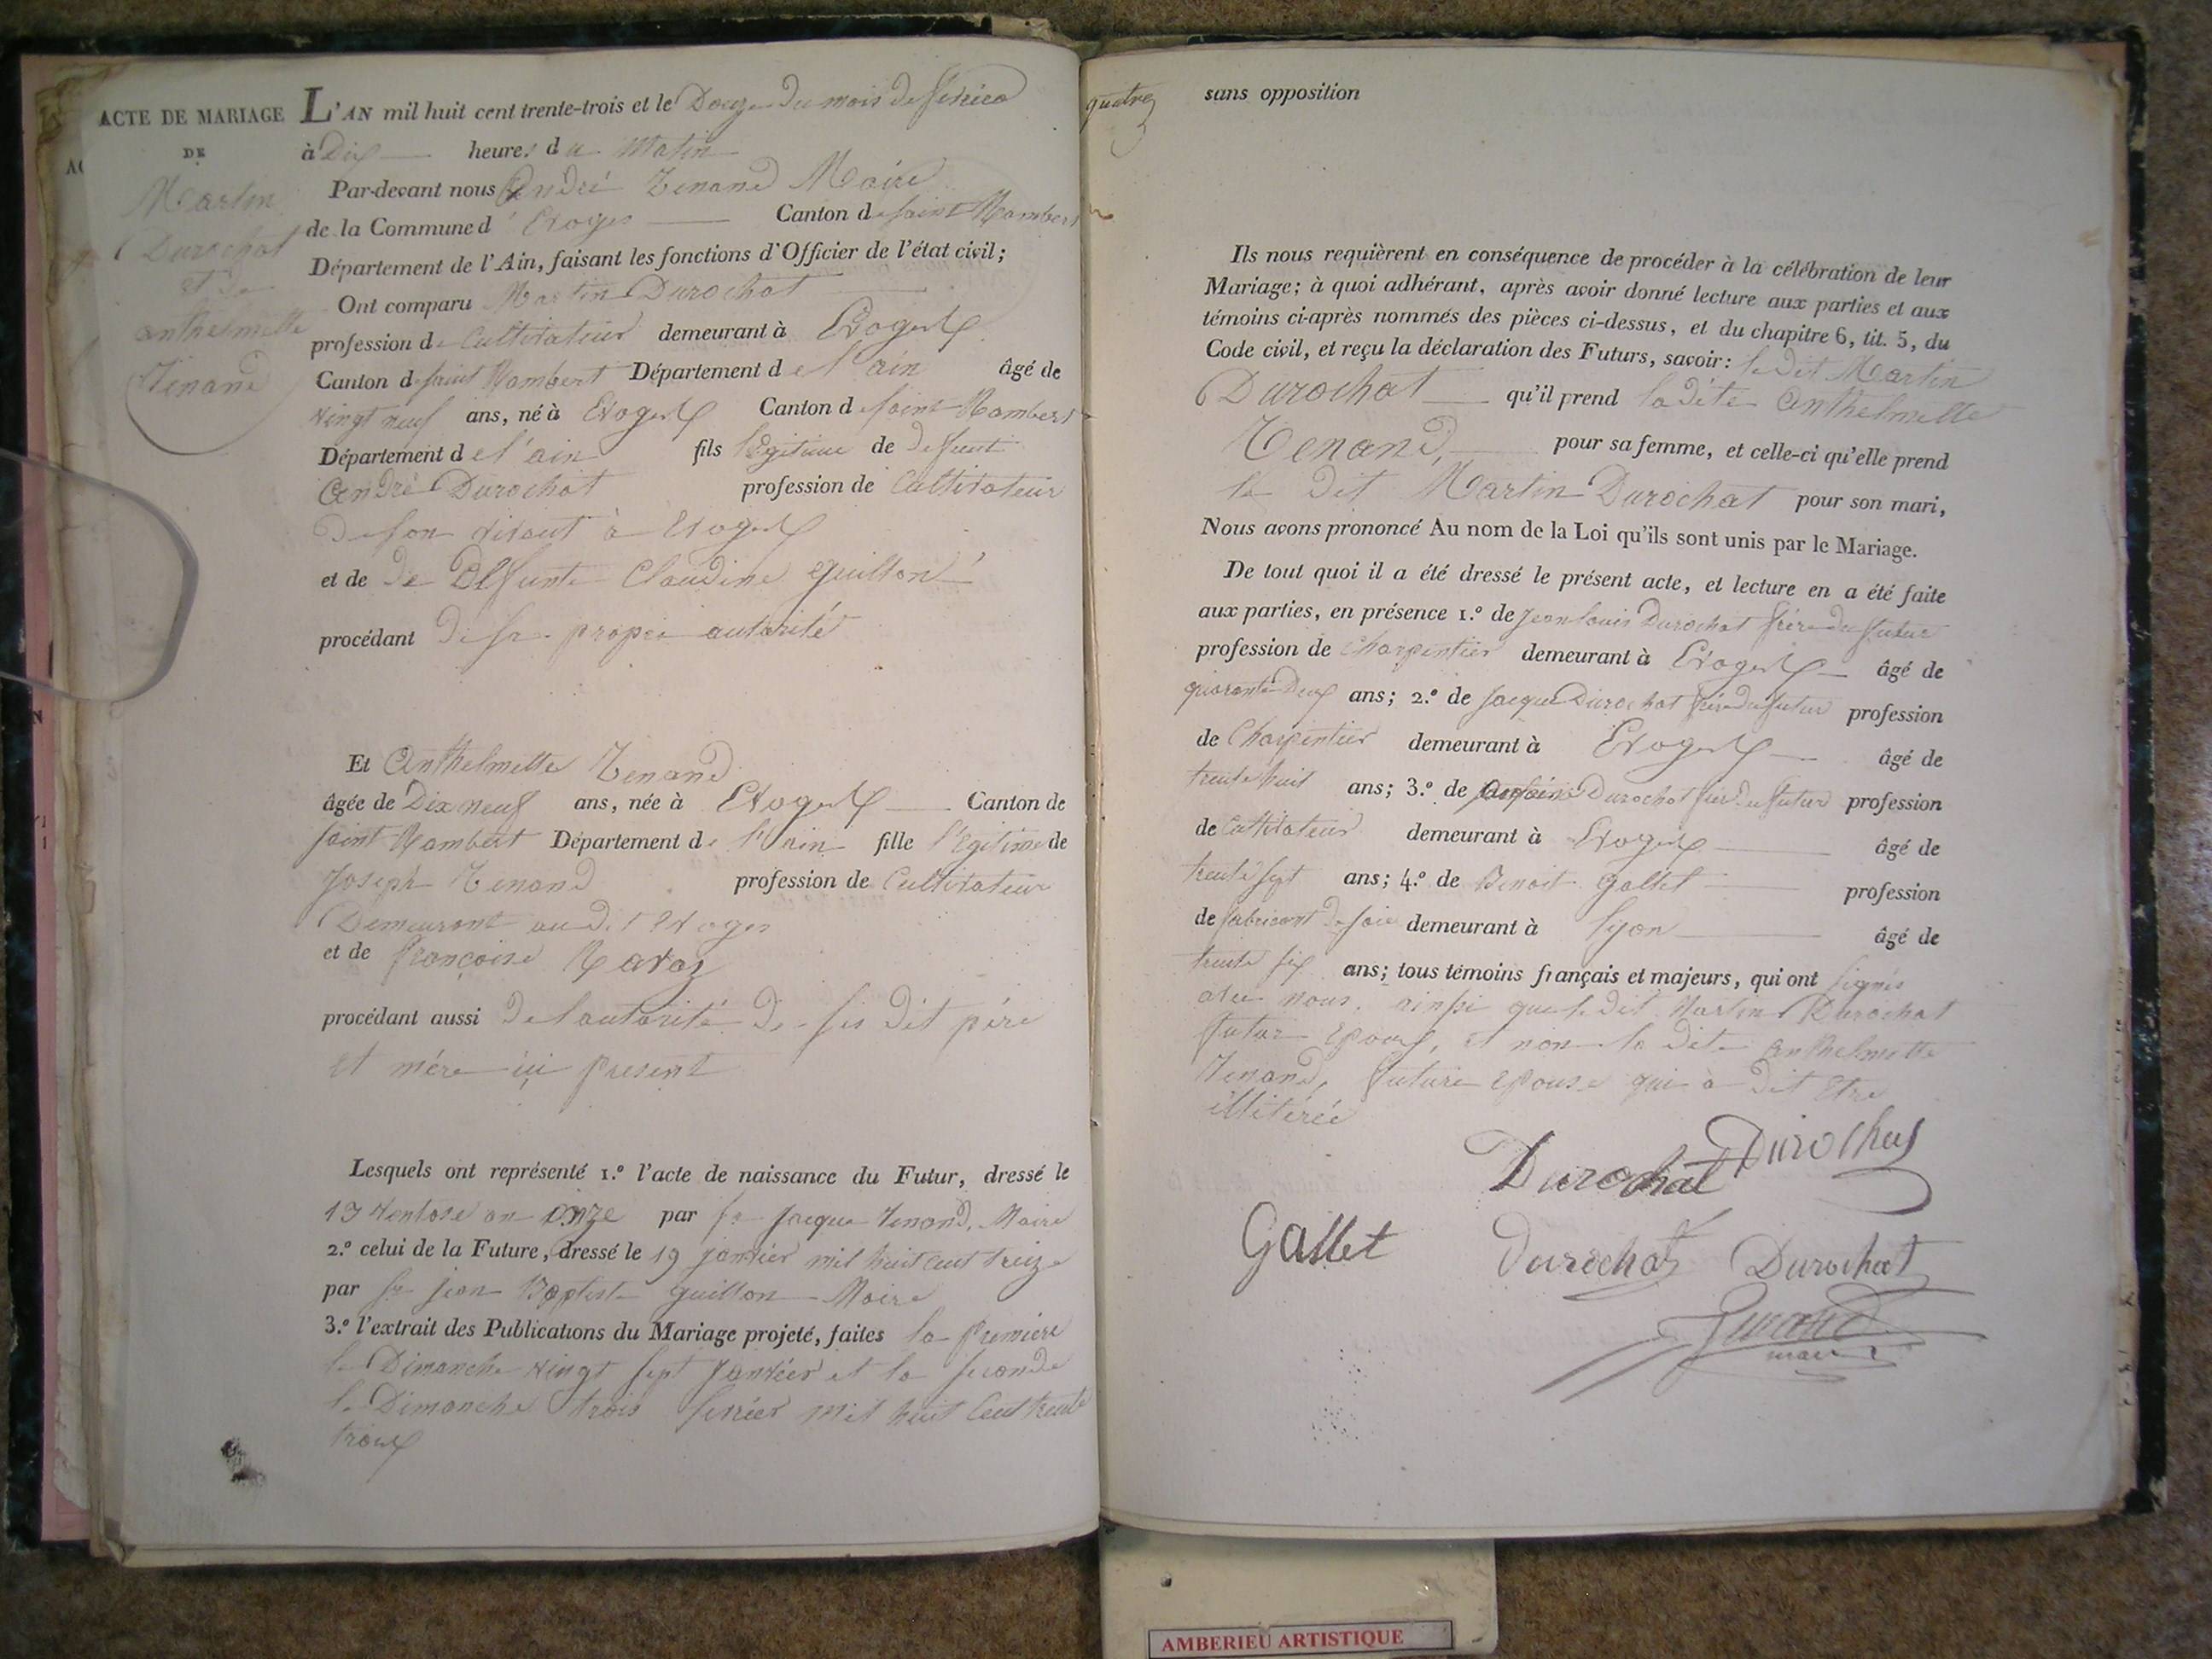 ACTE DE MARIAGE
DE
Martin
Durochat
et de
anthelmette
Tenand
L'AN mil huit cent trente-trois et le Douze du mois de fevrier
à Dix heures du Matin
Par-devant nous André Tenand Maire
de la Commune d'Evoges Canton de saint Rambert
Département de l'Ain, faisant les fonctions d'Officier de l'état civil;
Ont comparu Martin Durochat
profession de Cultivateur demeurant à Evoges
Canton de saint Rambert Département de l'ain âgé de
vingt neuf ans, né à Evoges Canton de saint Rambert
Département de l'ain fils légitime de deffunt
André Durochat profession de Cultivateur
de son vivant à Evoges
et de de deffunte Claudine guillon
procédant de sa propre autorité
Et Anthelmette Tenand
âgée de Dix neuf ans, née à Evoges Canton de
saint Rambert Département de l'ain fille légitime de
Joseph Tenand profession de Cultivateur
Demeurant au dit Evoges
et de françoise Ravoz
procédant aussi de l'autorité de ses dit père
et mère ici present
Lesquels ont représenté 1.º l'acte de naissance du Futur, dressé le
19 Ventose an onze par sr Jacque Tenand, Maire
2.º celui de la Future, dressé le 19 janvier mil huit cent treize
par sr jean Baptiste guillon Maire
3.º l'extrait des Publications du Mariage projeté, faites la premiere
le Dimanche vingt sept Janvier et la seconde
le Dimanche trois fevrier mil huit Cent trente
trois
quatre
sans opposition
Ils nous requièrent en conséquence de procéder à la célébration de leur
Mariage; à quoi adhérant, après avoir donné lecture aux parties et aux
témoins ci-après nommés des pièces ci-dessus, et du chapitre 6, tit. 5, du
Code civil, et reçu la déclaration des Futurs, savoir: le dit Martin
Durochat qu'il prend la dite anthelmette
Tenand, pour sa femme, et celle-ci qu'elle prend
le dit Martin Durochat pour son mari,
Nous avons prononcé Au nom de la Loi qu'ils sont unis par le Mariage.
De tout quoi il a été dressé le présent acte, et lecture en a été faite
aux parties, en présence 1.º de jean louis Durochat frère du futur
profession de Charpentier demeurant à Evoges âgé de
quarante deux ans; 2.º de Jacque Durochat frère du futur profession
de Charpentier demeurant à Evoges âgé de
trente huit ans; 3.º de Durochat frère du futur profession
de Cultivateur demeurant à Evoges âgé de
trente sept ans; 4.º de Benoit gallet profession
de fabricant de soie demeurant à lyon âgé de
trente six ans; tous témoins français et majeurs, qui ont signés
avec nous. ainsi que le dit Martin Durochat
futur Epoux, et non la dite anthelmette
Tenand, future epouse qui à dit etre
illitérée
Durochat Durochat
Gallet Durochat Durochat
Tenand
maire
AMBERIEU ARTISTIQUE